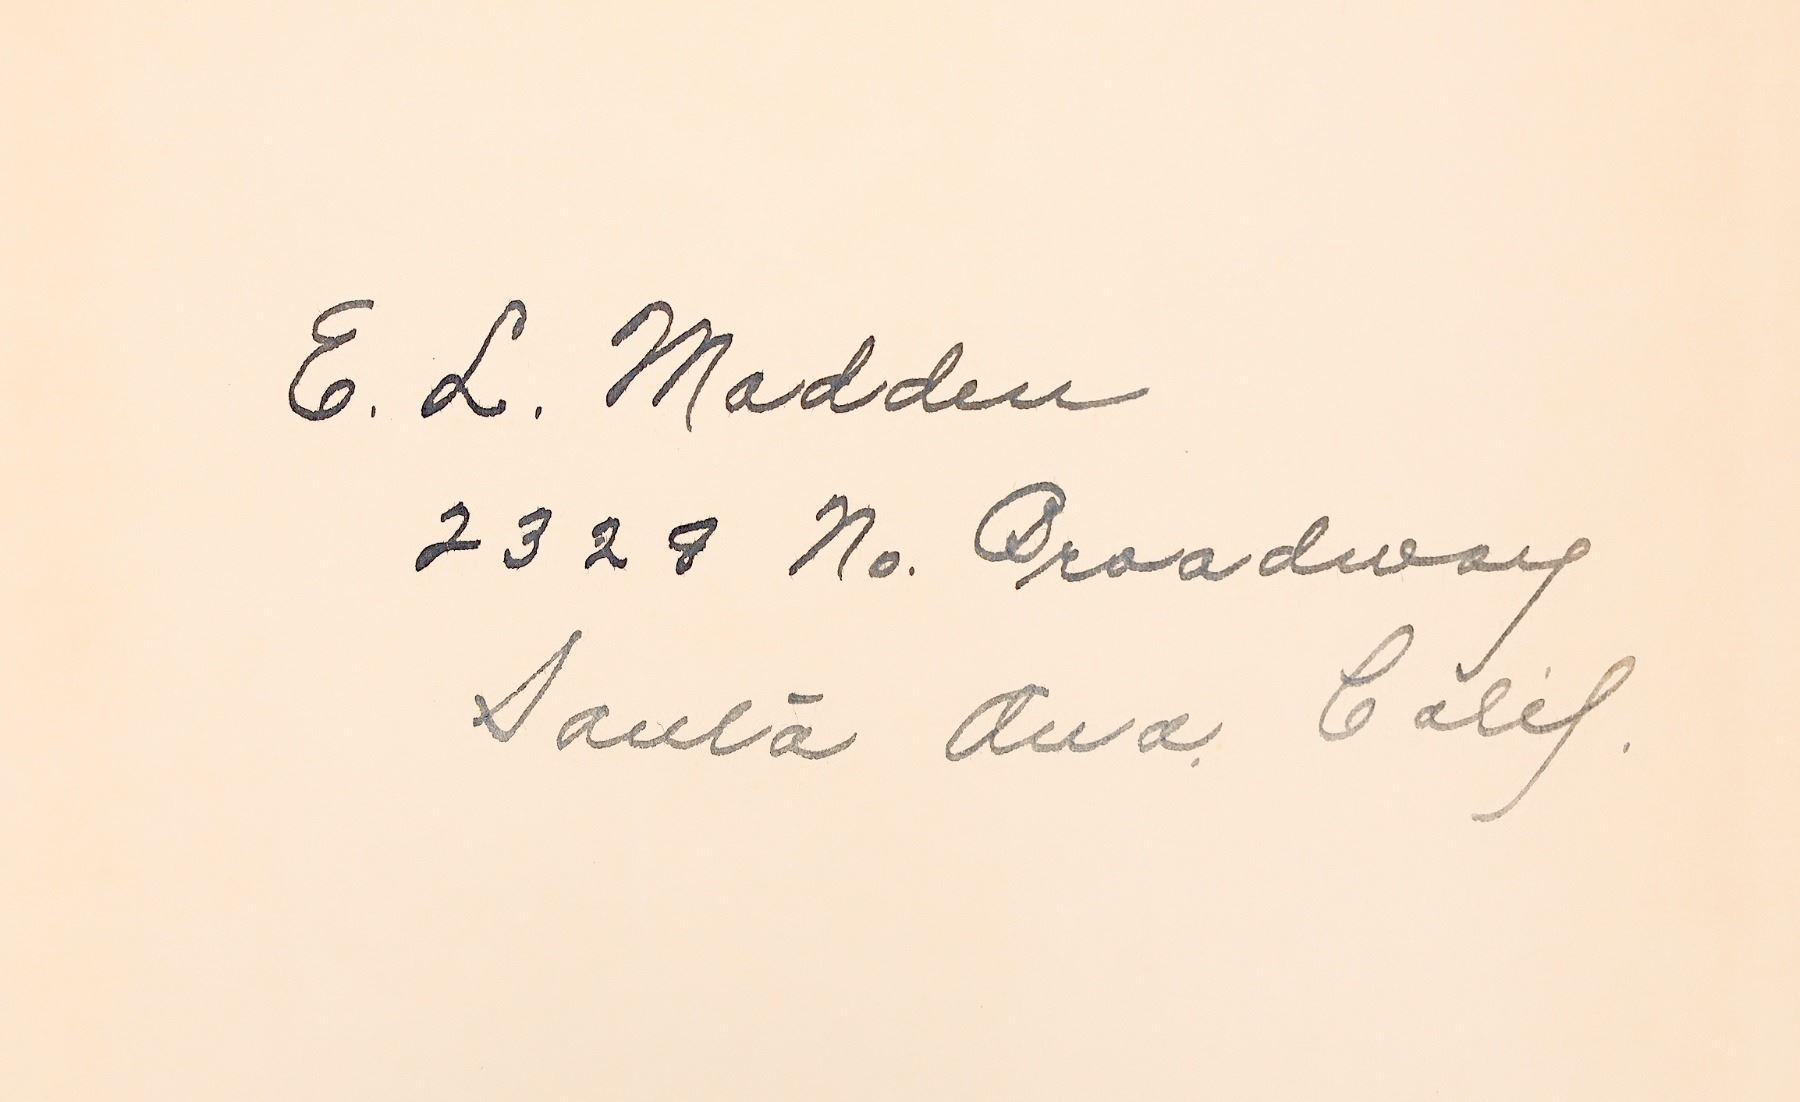 E. L. Madden
2328 No. Broadway
Santa Ana. Calif.